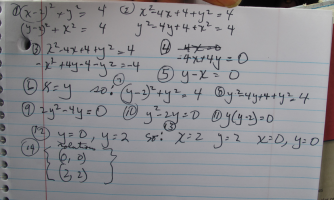 ① (x-2)² + y² = 4 ② x² - 4x + 4 + y² = 4
(y-2)² + x² = 4 y² - 4y + 4 + x² = 4
③ x² - 4x + 4 + y² = 4 ④ 4x = 0
-x² + 4y - 4 - y² = -4 -4x + 4y = 0
⑤ y - x = 0
⑥ x = y so: ⑦ (y-2)² + y² = 4 ⑧ y² - 4y + 4 + y² = 4
⑨ 2y² - 4y = 0 ⑩ y² - 2y = 0 ⑪ y(y-2) = 0
⑫ y = 0, y = 2 so: ⑬ x = 2 y = 2 x = 0, y = 0
⑭ solution
{(0, 0)
(2, 2)}